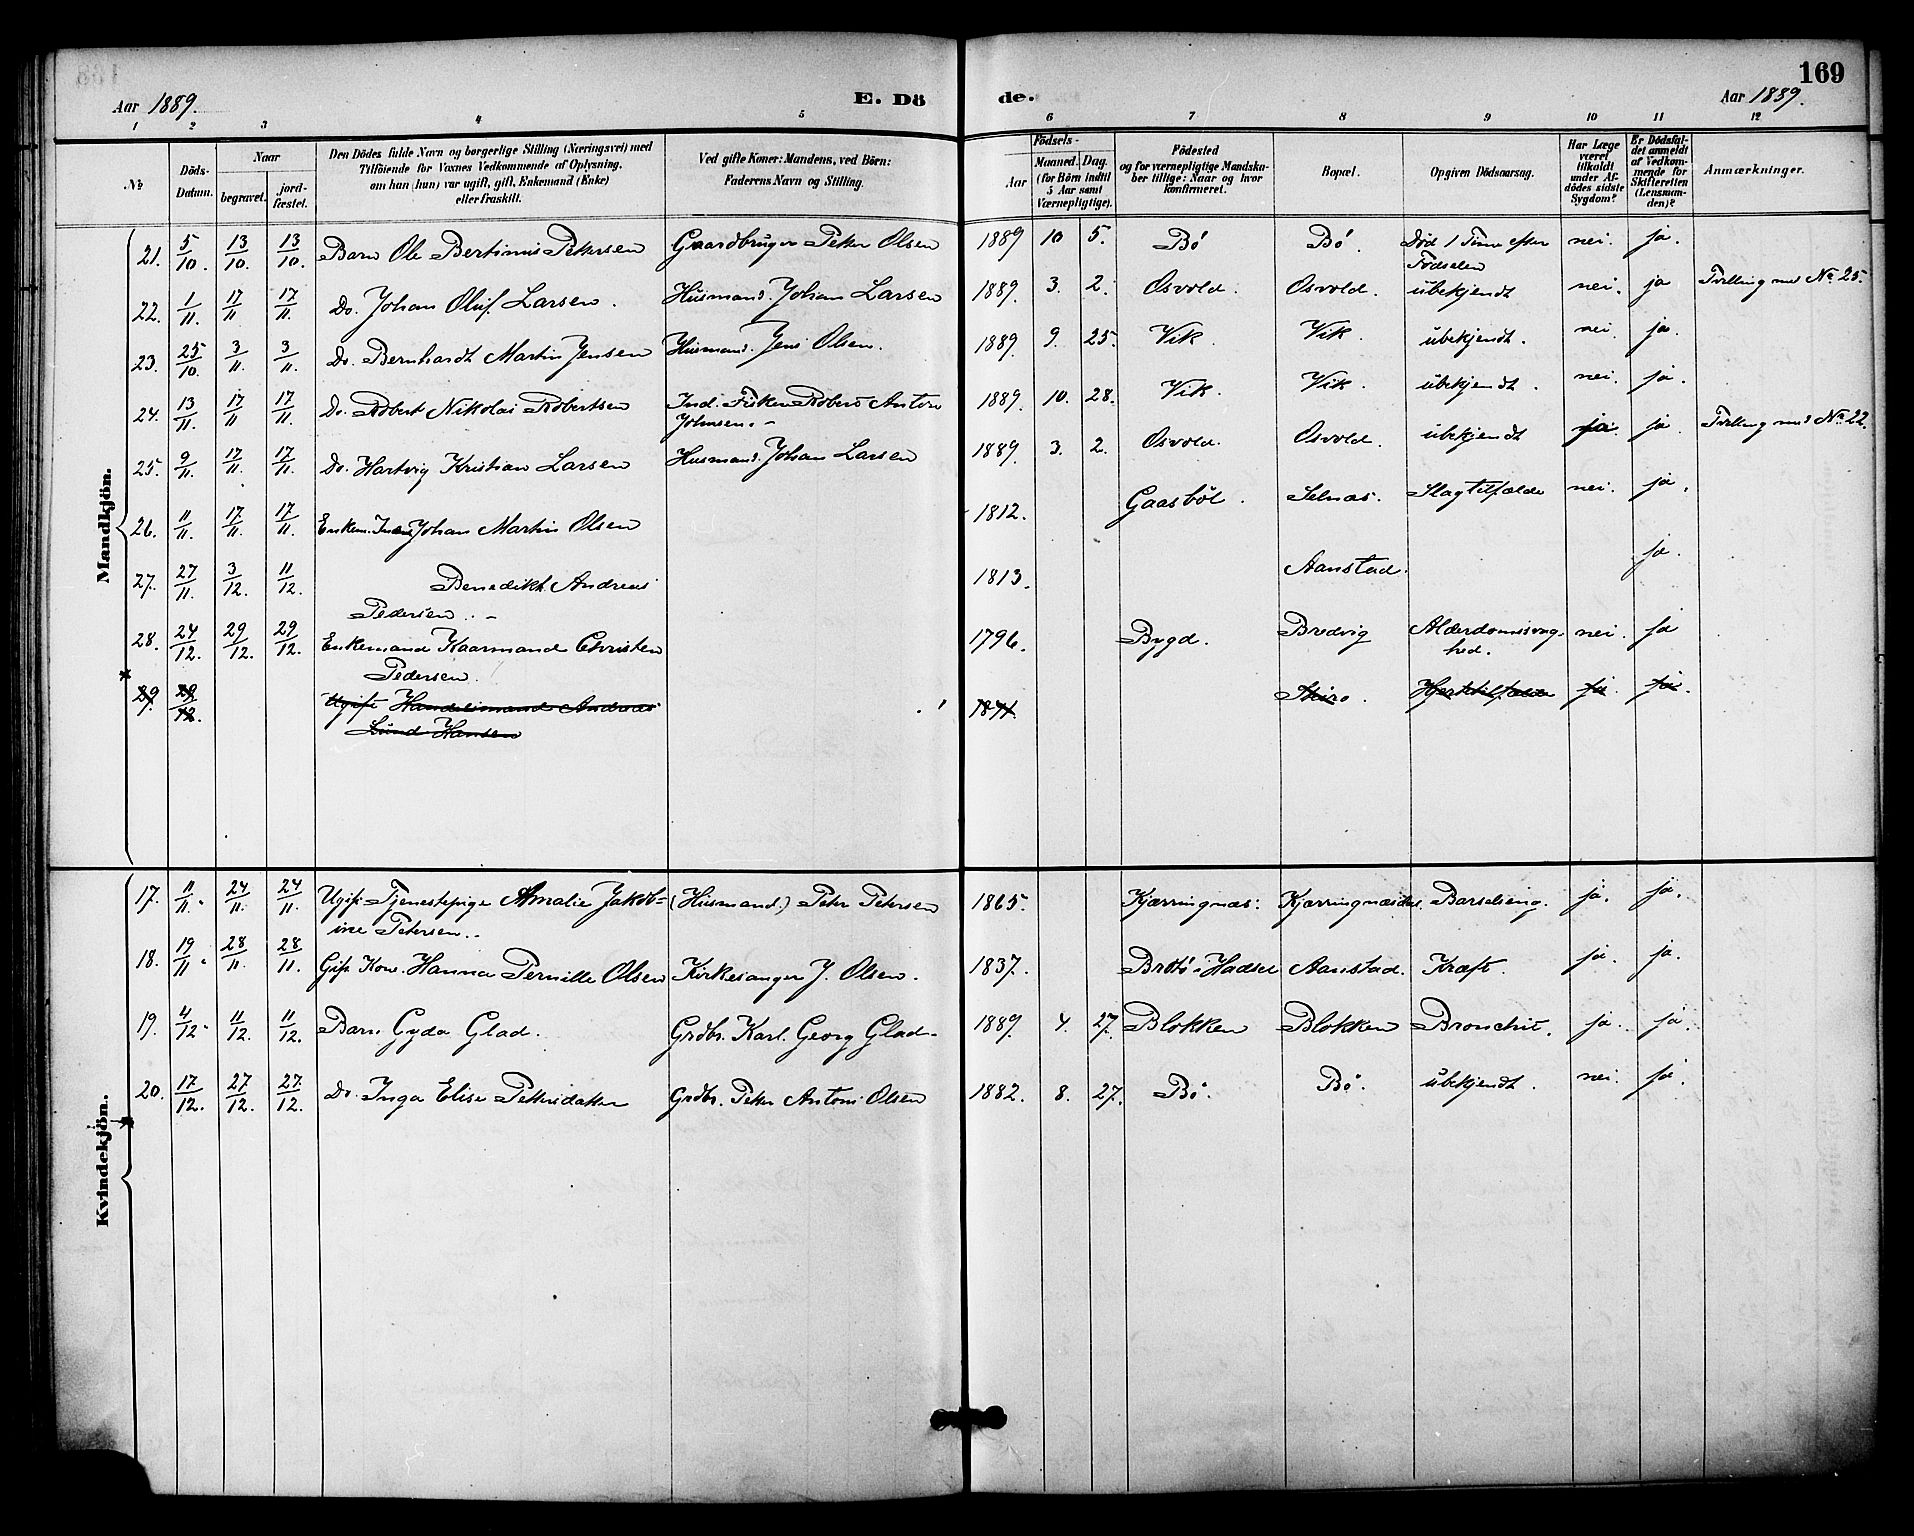 169
Aar 1889.
E. Dö
de.
Aar 1889.
1 2 3 4 5 6 7 8 9 10 11 12
No
Döds-Datum.
Naar
begravet.
jordfæstet.
Den Dödes fulde Navn og borgerlige Stilling (Næringsvei) med
Tilföiende for Voxnes Vedkommende af Oplysning,
om han (hun) var ugift, gift, Enkemand (Enke)
eller fraskilt.
Ved gifte Koner: Mandens, ved Börn:
Faderens Navn og Stilling.
Födsels-
Aar
Maaned. Dag.
(for Börn indtil
5 Aar samt
Værnepligtige).
Födested
og for værnepligtige Mandskaber tillige: Naar og hvor
konfirmeret.
Bopæl.
Opgiven Dödsaarsag.
Har Læge
været
tilkaldt
under Afdödes sidste
Sygdom?
Er Dödsfaldet anmeldt
af Vedkommende for
Skifteretten
(Lensmanden)?
Anmærkninger.
Mandkjön.
21. 5/10. 13/10. 13/10. Barn Ole Bertinus Pettersen Gaardbruger Peter Olsen 1889 10 5. Bö Bö. Död 1 Time efter Födselen nei. ja.
22. 1/11. 17/11 17/11. Do. Johan Oluf Larsen. Husmand. Johan Larsen 1889. 3. 2. Osvold. Osvold. ubekjendt nei. ja Tvilling med No 25.
23. 25/10. 3/11. 3/11. Do. Bernhardt Martin Jensen Husmand. Jens Olsen. 1889. 9. 25. Vik. Vik. ubekjendt. nei. ja.
24. 13/11. 17/11 17/11. Do. Robert Nikolai Robertsen Ind. Fisker Robert Anton Johnsen. 1889. 10. 28. Vik. Vik. ubekjendt. nei. ja.
25. 9/11. 17/11. 17/11. Do. Hartvig Kristian Larsen Husmand. Johan Larsen 1889. 3. 2. Osvold. Osvold. ubekjendt ja. ja. Tvilling med No 22.
26. 11/11. 17/11. 17/11. Enkem. Johan Martin Olsen 1812. Gaasböl. Selnæs. Slagtilfælde nei. ja.
27. 27/11. 3/12. 11/12. Benedikt Andreas
Pedersen. 1813. Aanstad. ja.
28. 24/12. 29/12. 29/12. Enkemand Kaarmand Christen
Pedersen. 1796. Bygd. Bredvig Alderdomssvaghed. nei. ja
29. 29/12. Ugift Handelsmand Andreas
Lund Hansen 1871. Skiro. Hjertetilfælde ja. ja.
Kvindekjön.
17. 11/11. 24/11. 24/11. Ugift Tjenestepige Amalie Jakobine Petersen. (Husmand.) Peter Petersen 1865. Kjærringnæs. Barselseng. ja. ja.
18. 19/11. 28/11. 28/11. Gift Kone. Hanna Pernille Olsen Kirkesanger J. Olsen. 1837. Hadsel Aanstad. Kræft. ja. ja.
19. 4/12. 11/12. 11/12. Barn Gyda Glad. Grdbr. Karl Georg Glad. 1889. 4. 27. Blokken Blokken Bronchit. ja. ja.
20. 17/12. 27/12. 27/12. Do. Inga Elise Pettersdatter Grdbr. Peter Antoni Olsen 1882. 8. 27. Bö. Bö. ubekjendt. nei. ja.